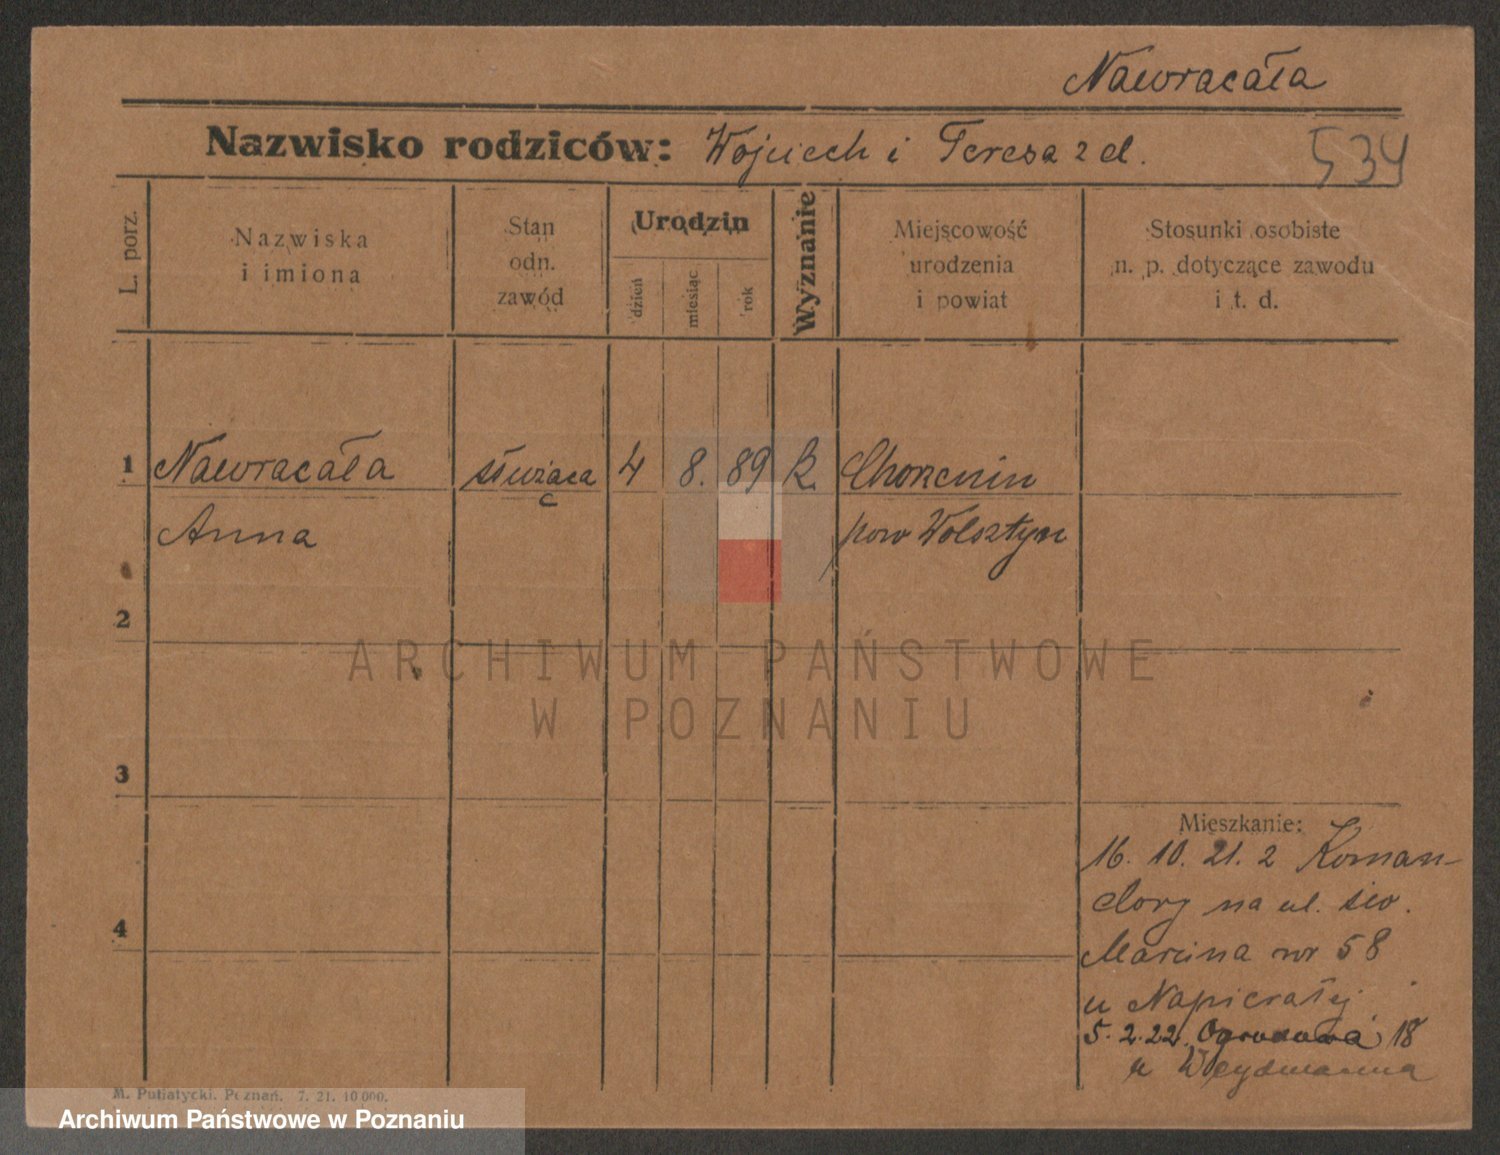 Nawracała
Nazwisko rodziców: Wojciech i Teresa z d.
534
L. porz.
Nazwiska
i imiona
Stan
odn.
zawód
Urodzin
dzień
miesiąc
rok
Wyznanie
Miejscowość
urodzenia
i powiat
Stosunki osobiste
n. p. dotyczące zawodu
i t. d.
1 Nawracała służąca 4 8. 89 k. Chorzenin
Anna pow Wolsztyn
2
ARCHIWUM PAŃSTWOWE
W POZNANIU
3
Mieszkanie:
16. 10. 21. z Koman-
dory na ul. św.
4
Marcina nr 58
u Napierałej
5. 2. 22. Ogrodowa 18
u Weydmanna
M. Putiatycki. Poznań. 7. 21. 10 000.
Archiwum Państwowe w Poznaniu